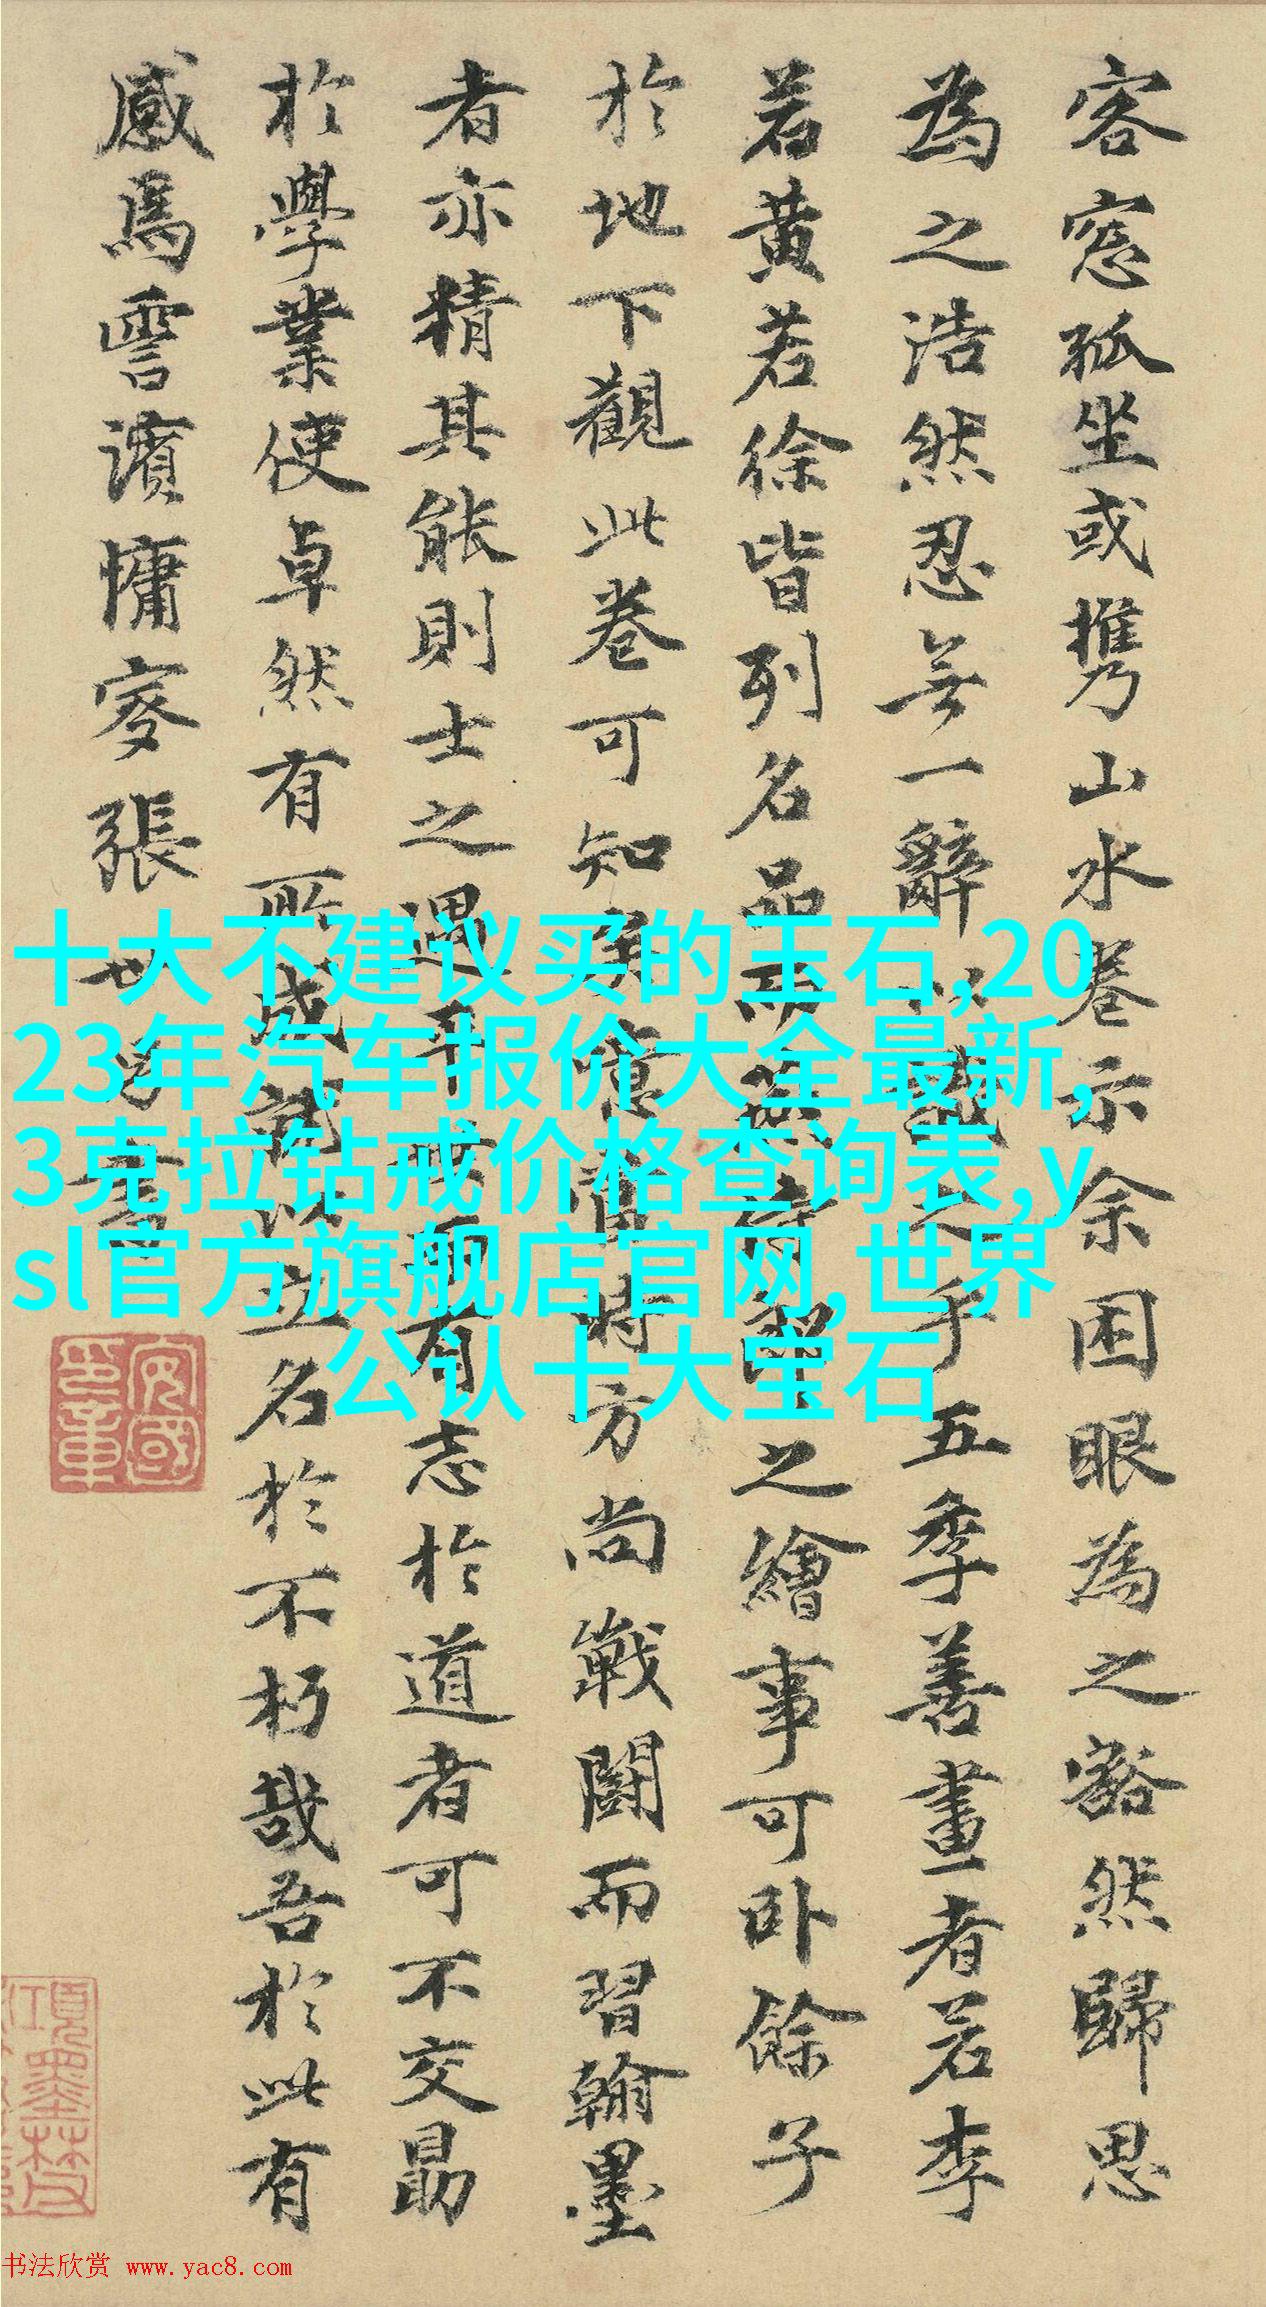 客窓孤坐或携山水卷示余困眼為之豁然歸思
為之浩然忍无一辭以之乎五季善畫者若李
若黄若徐皆列名品而之繪事可卧餘子
於地下觀此卷可知意當時方尚戰鬪而習翰墨
者亦精其能則士之遇平世而有志於道者可不交勗
於學業使卓然有所成就以立名於不朽哉吾於此有
感焉霅濆慵叜張世昌書
十大不建议买的玉石,20
23年汽车报价大全最新,
3克拉钻戒价格查询表,y
sl官方旗舰店官网,世界
公认十大宝石
书法欣赏 www.yac8.com